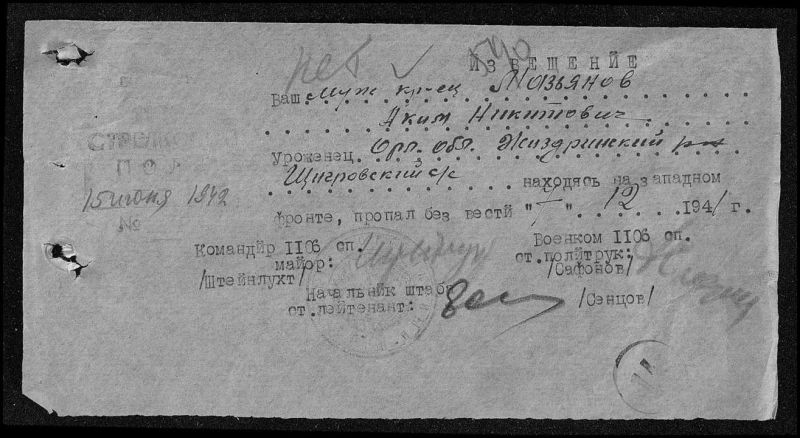 ИЗВЕЩЕНИЕ
Ваш муж кр-ец Мазьянов
Аким Никитович
Уроженец Орл. обл. Жиздринский
Щигровский с/с находясь на западном
фронте, пропал без вести " " 12 1941 г.
СТРЕЛКО
ПОЛ
15 июня 1942
№
Командир 1106 сп. Военком 1106 сп.
майор: ст.политрук:
/Штейнлухт/ /Сафонов/
Начальник штаб
ст.лейтенант: /Сенцов/